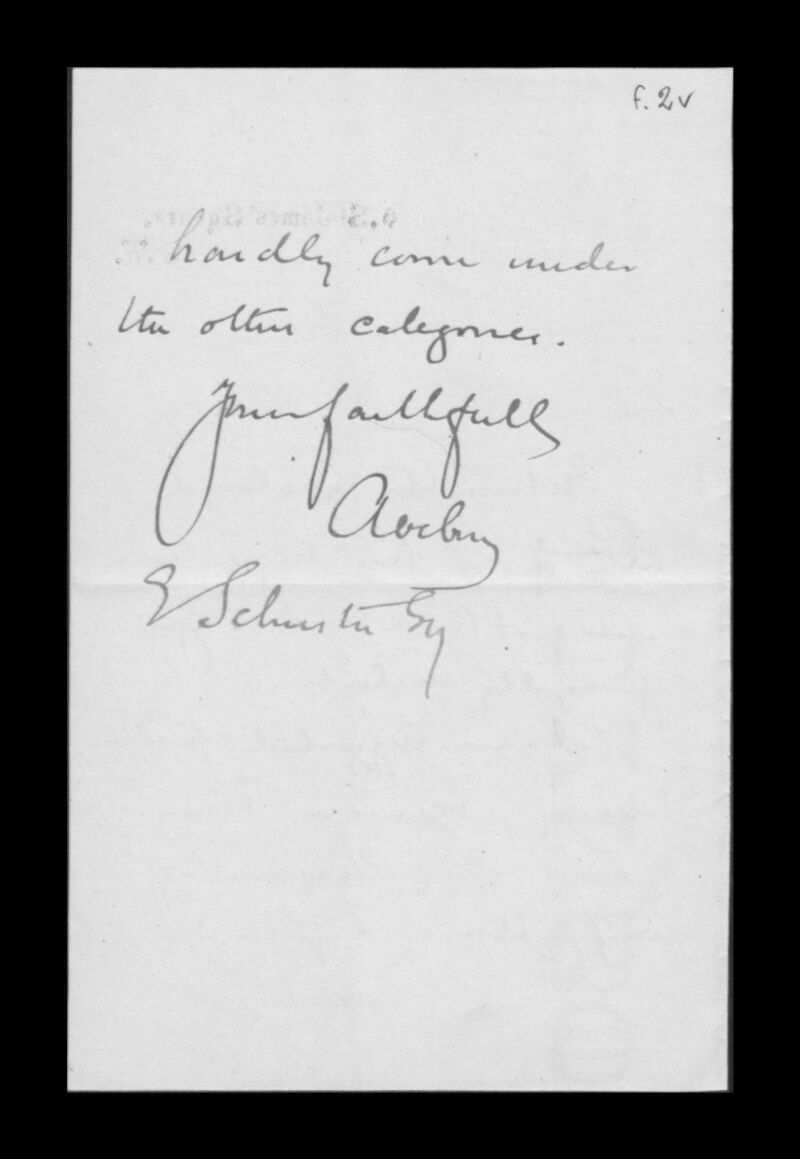 f. 2v
hardly come under
the other categories.
Yours faithfully
Avebury
E Schuster Esq